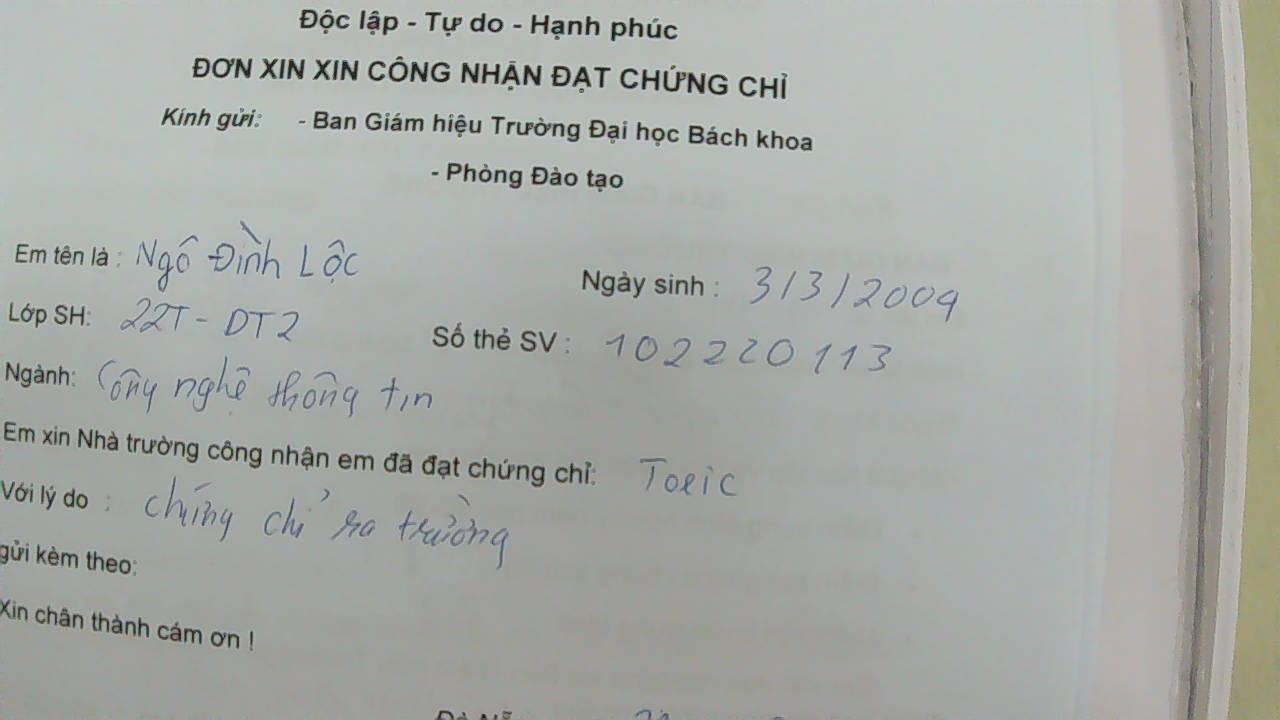 Độc lập - Tự do - Hạnh phúc
ĐƠN XIN XIN CÔNG NHẬN ĐẠT CHỨNG CHỈ
Kính gửi: - Ban Giám hiệu Trường Đại học Bách khoa
- Phòng Đào tạo
Em tên là : Ngô Đình Lộc Ngày sinh : 3/3/2004
Lớp SH: 22T-DT2 Số thẻ SV : 102220113
Ngành: Công nghệ thông tin
Em xin Nhà trường công nhận em đã đạt chứng chỉ: Toeic
Với lý do : chứng chỉ ra trường
gửi kèm theo:
Xin chân thành cám ơn !